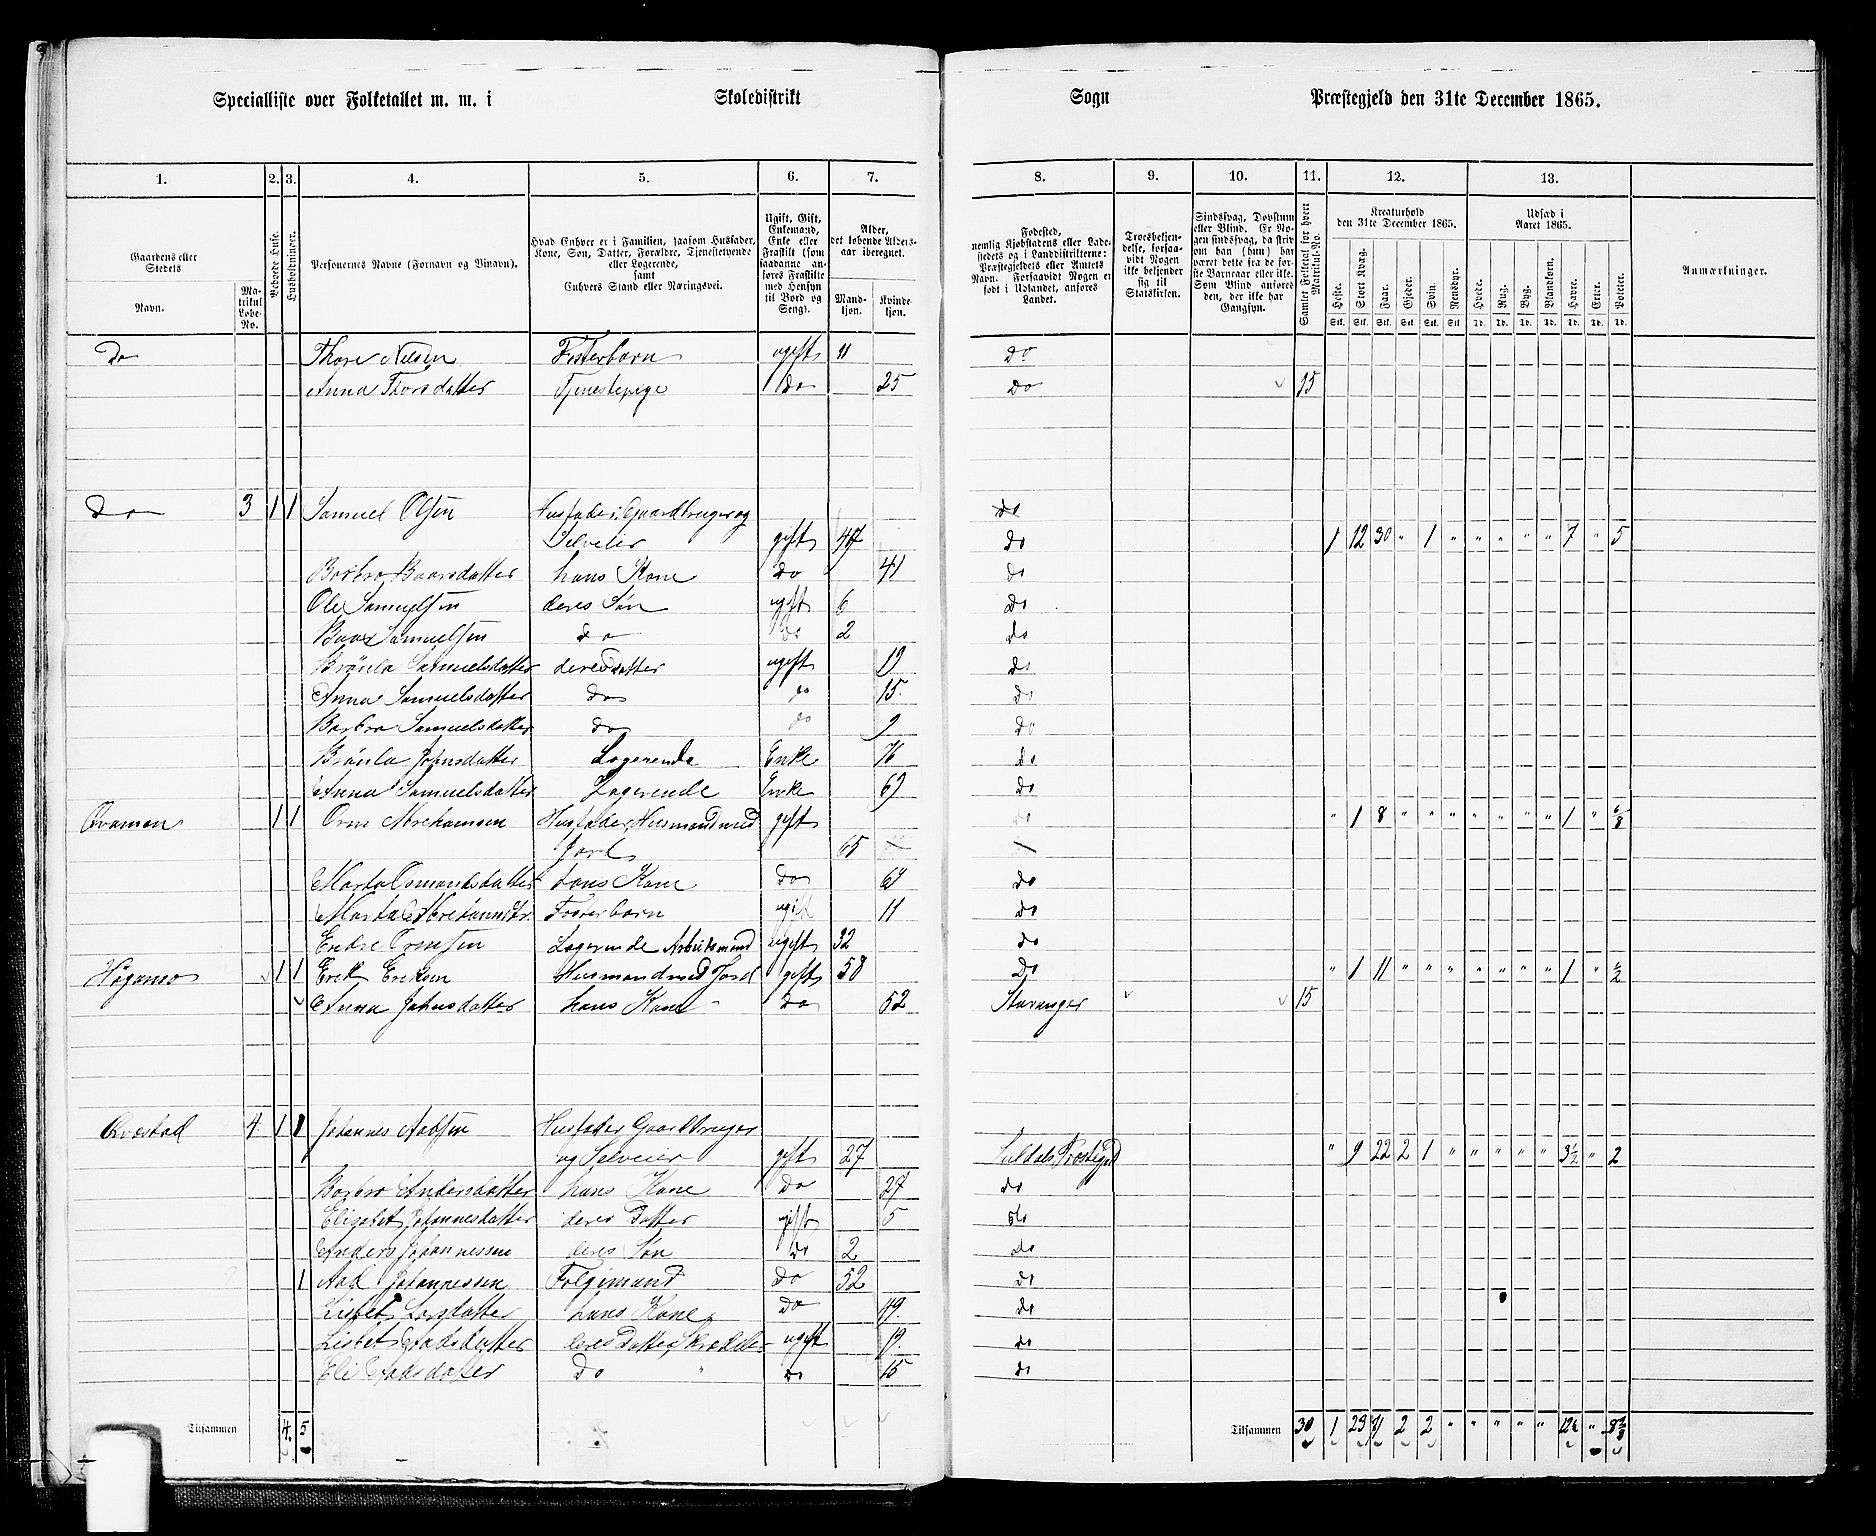 Specialliste over Folketallet m. m. i Skoledistrikt Sogn Præstegjeld den 31te December 1865.
1. 2. 3. 4. 5. 6. 7. 8. 9. 10. 11. 12. 13.
Gaardens eller Stedets
Navn.
Matrikul Løbe-No.
Beboede Huse.
Husholdninger.
Personernes Navne (Fornavn og Binavn).
Hvad Enhver er i Familien, saasom Husfader, Kone, Søn, Datter, Forældre, Tjenestetyende eller Logerende, samt Enhvers Stand eller Næringsvei.
Ugift, Gift, Enkemand, Enke eller Fraskilt (som saadanne anføres Fraskilte med Hensyn til Bord og Seng).
Alder, det løbende Aldersaar iberegnet.
Mandkjøn.
Kvindekjøn.
Fødested, nemlig Kjøbstadens eller Ladestedets og i Landdistrikterne: Præstegjeldets eller Amtets Navn. Forsaavidt Nogen er født i Udlandet, anføres Landet.
Troesbekjendelse, forsaavidt Nogen ikke bekjender sig til Statskirken.
Sindssvag, Døvstum eller Blind. Er Nogen sindssvag, da skrives om han (hun) har været dette fra de første Barneaar eller ikke. Som Blind anføres den, der ikke har Gangsyn.
Samlet Folketal for hvert Matrikul-No.
Kreaturhold den 31te December 1865.
Heste. Stort Kvæg. Faar. Gjeder. Svin. Rensdyr.
Stk. Stk. Stk. Stk. Stk. Stk.
Udsæd i Aaret 1865.
Hvede. Rug. Byg. Blandkorn. Havre. Erter. Poteter.
Td. Td. Td. Td. Td. Td. Td.
Anmærkninger.
Do Thore Nilsen Fosterbarn ugift 11 Do
Anna Thorsdatter Tjenestepige do 25 Do 15
Do 3 1 1 Samuel Olsen Husfader, Gaardbruger og do
Selveier gift 47 Do 1 12 30 " 1 " " " " " 7 " 5
Barbro Baarsdatter hans Kone do 41 Do
Ole Samuelsen deres Søn ugift 6 Do
Baar Samuelsen do do 2 do
Brønla Samuelsdatter deres Datter ugift 19 do
Anna Samuelsdatter do do 15 do
Barbro Samuelsdatter do do 9 do
Brønla Johnsdatter Logerende Enke 76 do
Anna Samuelsdatter Logerende Enke 69 do
1 1 Orm Abrahamsen Husfader, Husmand med gift do " 1 8 " " " " " " " 1 " 6/8
Jord 65
Marta Osmundsdatter hans Kone Do do
Fosterbarn ugift 11 do
Endre Ormsen Logerende Arbeidsmand ugift 32 do
1 1 Erik Eriksen Husmand med Jord gift 58 Do " 1 11 " " " " " " " 1 " 1/2
Anna Johnsdatter hans Kone do 52 Stavanger 15
Qvæstad 4. 1 1 Johannes Aadsen Husfader Gaardbruger
og Selveier gift 27 Suldals Præstegd " 9 22 2 1 " " " " " 3 1/2 " 2
Barbro Andersdatter hans Kone Do 27 do
Elisabet Johannesdatter deres Datter ugift 5 do
Anders Johannessen deres Søn do 2 Do
1 Aad Johannessen Følgemand do 52 do
Lisbet Larsdatter hans Kone do 49. do
Lisbet Aadsdatter deres Datter, ugift 19. do
Eli Aadsdatter Do " do 15 do
Tilsammen 4. 5 Tilsammen 30 1 23 71 2 2 " " " " " 12 1/2 " 8 2/8